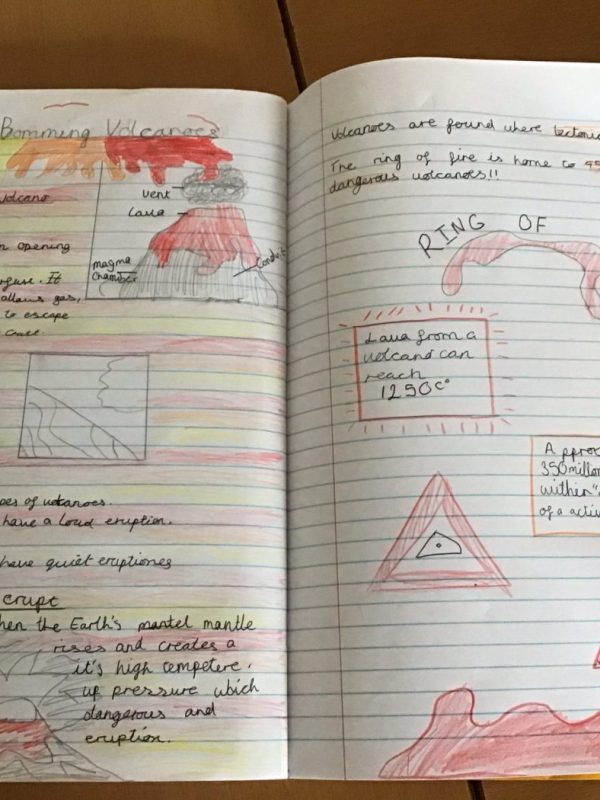 Bomming Volcanoes
Volcano
vent
Lava
opening
magma
chamber
Conduit
It
allows gas,
to escape
of volcanoes.
have a loud eruption.
have quiet eruptiones
erupt
the Earth's mantel mantle
rises and creates a
it's high tempetere.
up pressure which
dangerous and
eruption.
Volcanoes are found where
The ring of fire is home to
dangerous volcanoes!!
RING OF
Lava from a
volcano can
reach
1250c°
A
350
within
of a